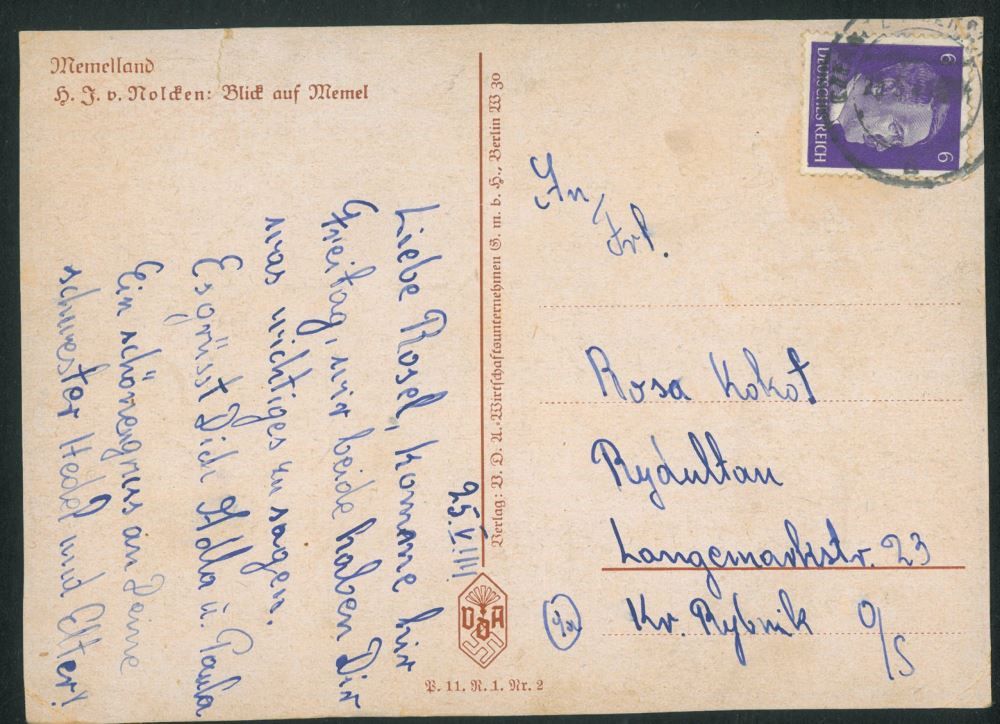 Memelland
H. J. v. Nolcken: Blick auf Memel
25. VIII
Liebe Rosel, komme hir
Freitag, wir beide haben Dir
was wichtiges zu sagen.
Es grüsst Dich Adla u. Paula
Ein schönengruss an Deine
schwester Hedel und Elter!
Verlag: V. D. A.-Wirtschaftsunternehmen G. m. b. H., Berlin W 30
VDA
P. 11. R. 1. Nr. 2
DEUTSCHES REICH
6 6
An
Frl.
Rosa Kokot
Rydultau
Langemarkstr. 23
Kr. Rybnik O/S